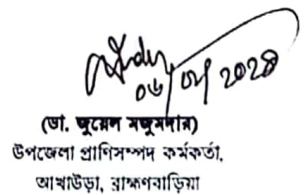 ০৬/০১/২০২৪
(ডা. জুয়েল মজুমদার)
উপজেলা প্রাণিসম্পদ কর্মকর্তা,
আখাউড়া, ব্রাহ্মণবাড়িয়া